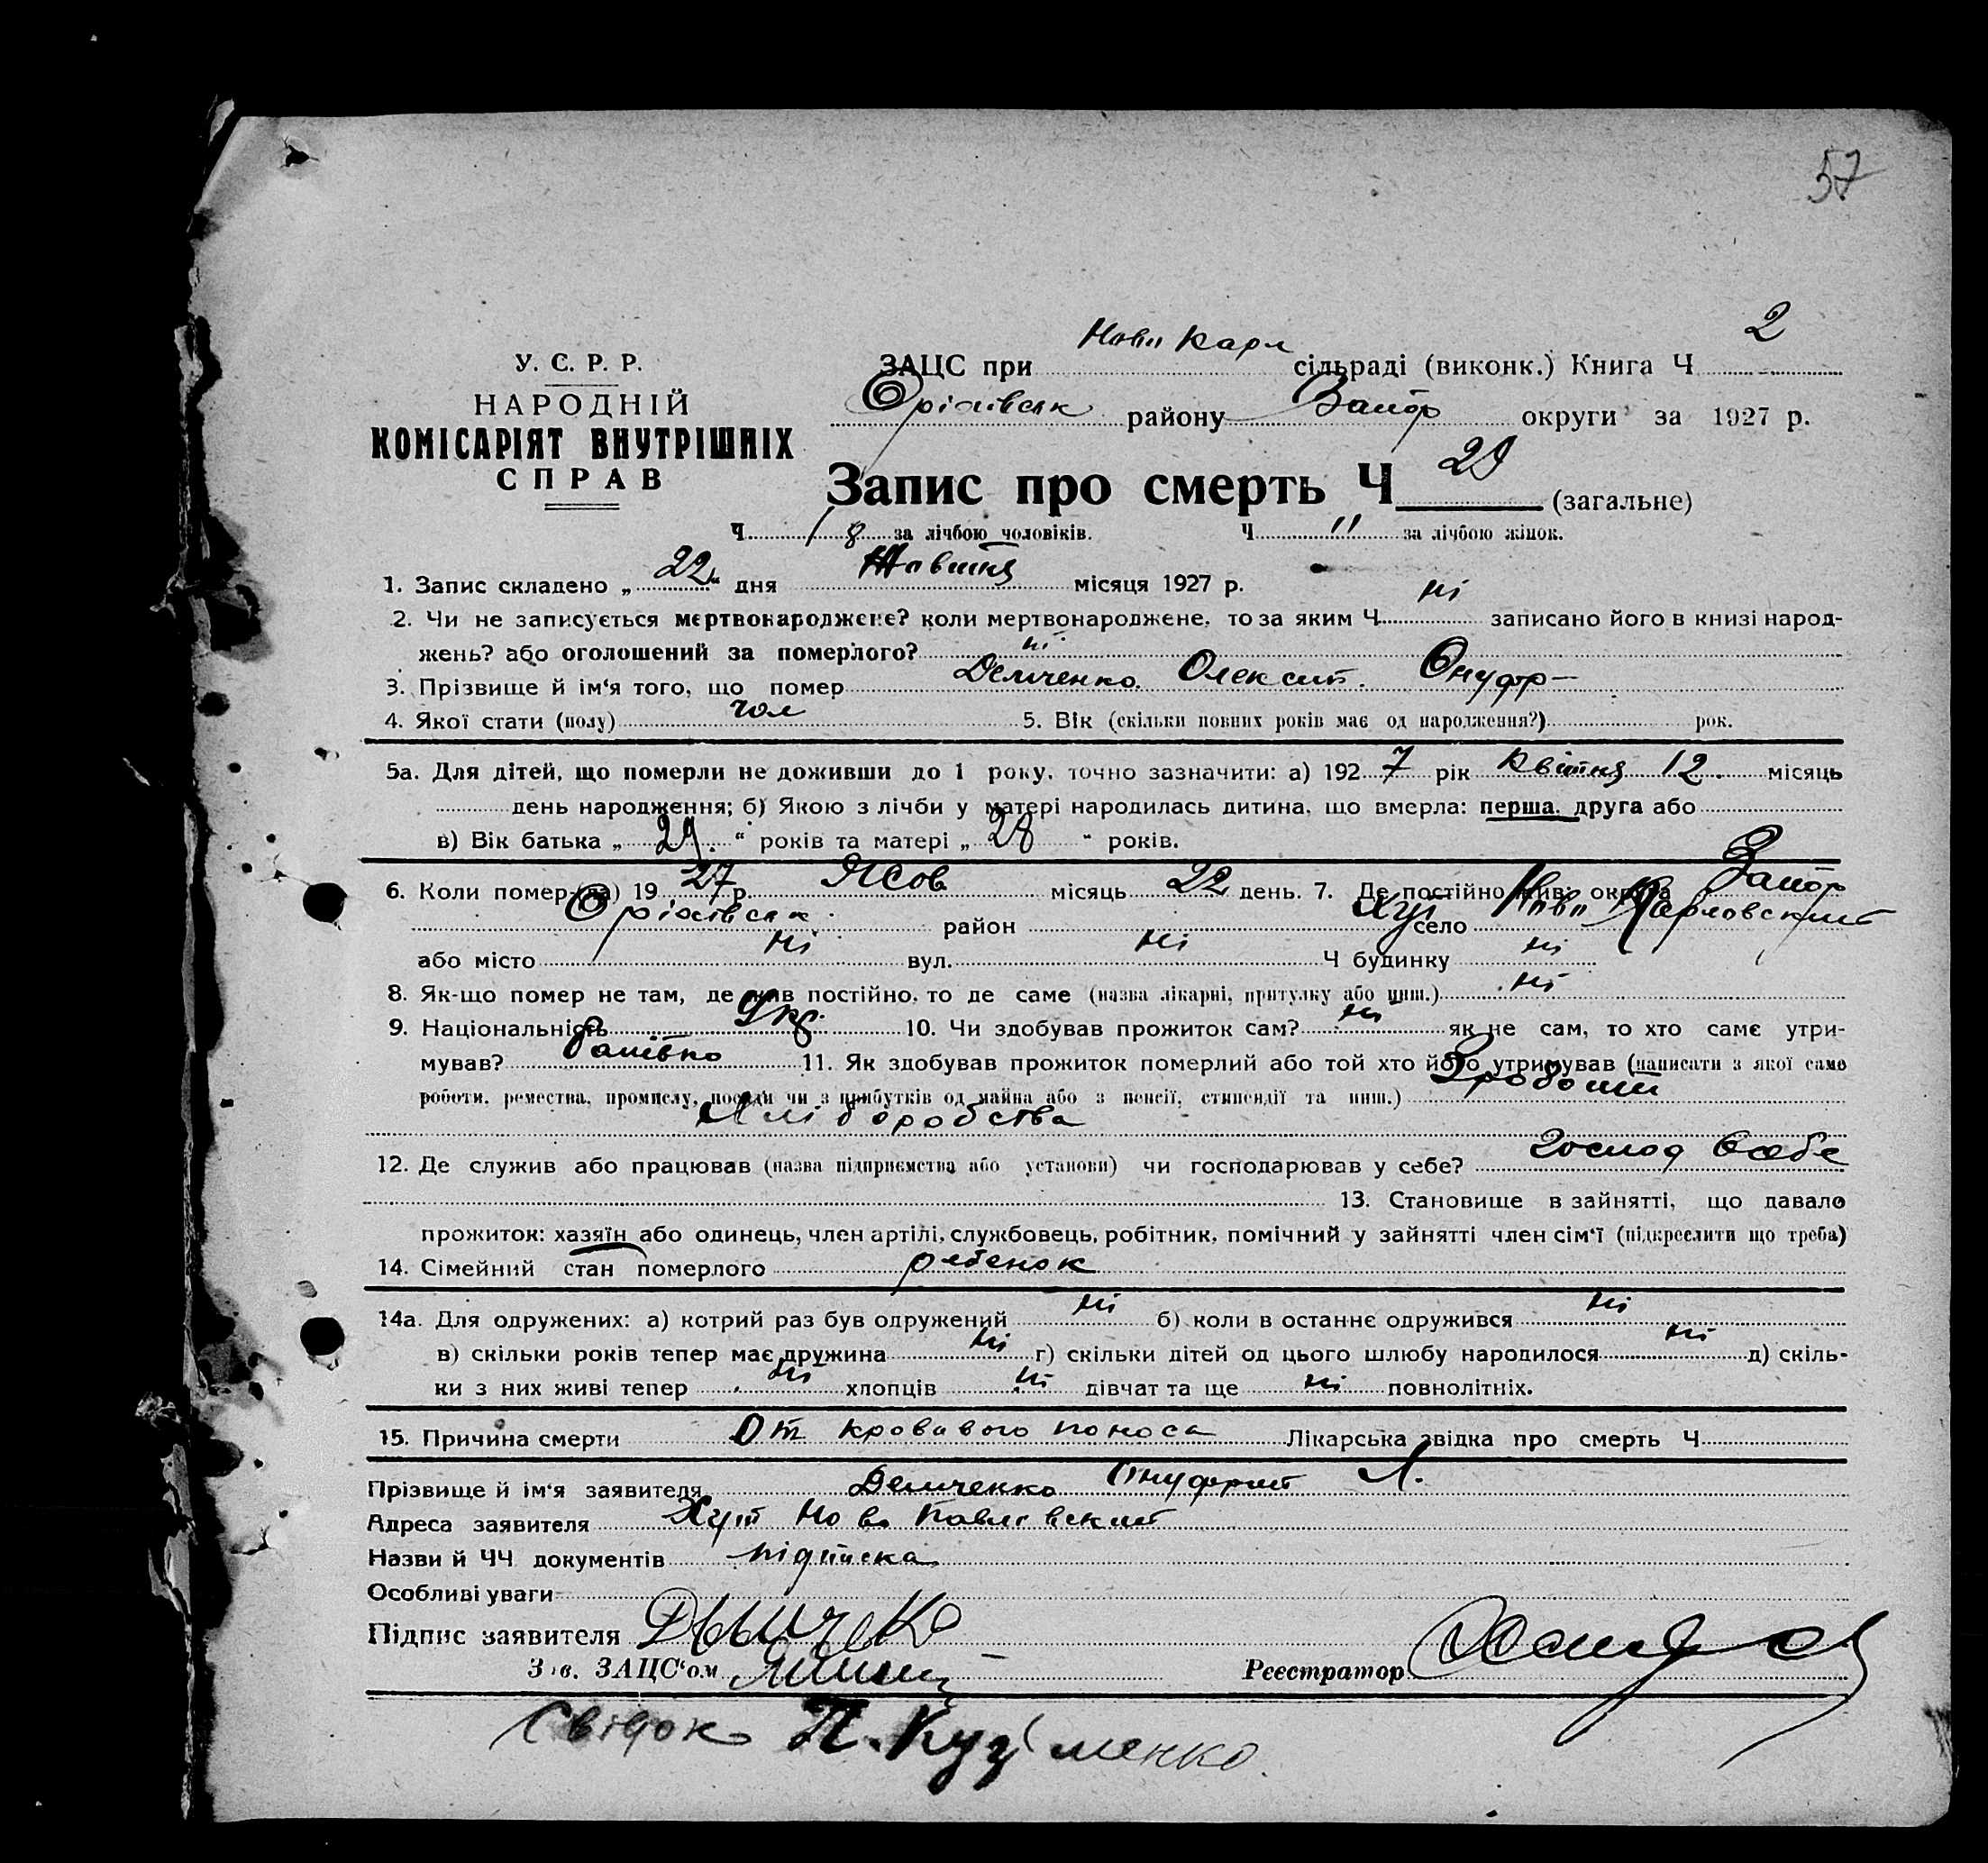 57
У. С. Р. Р.
НАРОДНІЙ
КОМІСАРІЯТ ВНУТРІШНІХ
СПРАВ
ЗАЦС при Ново Карл сільраді (виконк.) Книга Ч 2
Оріхівськ району Запор округи за 1927 р.
Запис про смерть Ч 29 (загальне)
Ч 18 за лічбою чоловіків. Ч 11 за лічбою жінок.
1. Запис складено „ 22 “ дня Жовтня місяця 1927 р.
2. Чи не записується мертвонароджене? коли мертвонароджене, то за яким Ч ні записано його в книзі народ-
жень? або оголошений за померлого? ні
3. Прізвище й ім‘я того, що помер Демченко Олексит. Онуфр—
4. Якої стати (полу) чол 5. Вік (скільки повних років має од народження?) рок.
5а. Для дітей, що померли не доживши до 1 року, точно зазначити: а) 192 7 рік Квітня 12. місяць
день народження; б) Якою з лічби у матері народилась дитина, що вмерла: перша, друга або
в) Вік батька „ 29. “ років та матері „ 28 “ років.
6. Коли помер(ла) 19 27 р. Жов місяць 22 день. 7. Де постійно жив: округа Запор
Оріхівськ. район село Хут Ново Карловский
або місто ні вул. ні Ч будинку ні
8. Як-що помер не там, де жив постійно, то де саме (назва лікарні, притулку або инш.) ні
9. Національність Укр. 10. Чи здобував прожиток сам? ні як не сам, то хто саме утри-
мував? батько 11. Як здобував прожиток померлий або той хто його утримував (написати з якої само
роботи, ремества, промислу, посади чи з прибутків од майна або з пенсії, стипендії та инш.) Зроботи
Хліборобства
12. Де служив або працював (назва підприємства або установи) чи господарював у себе? Господ Всебе
13. Становище в зайнятті, що давало
прожиток: хазяїн або одинець, член артілі, службовець, робітник, помічний у зайнятті член сім‘ї (підкреслити що треба)
14. Сімейний стан померлого ребенок
14а. Для одружених: а) котрий раз був одружений ні б) коли в останнє одружився ні
в) скільки років тепер має дружина ні г) скільки дітей од цього шлюбу народилося ні д) скіль-
ки з них живі тепер ні хлопців ні дівчат та ще ні повнолітніх.
15. Причина смерти От кровавого поноса Лікарська звідка про смерть Ч
Прізвище й ім‘я заявителя Демченко Онуфрит Л.
Адреса заявителя Хут Ново Павловский
Назви й ЧЧ документів підписка
Особливі уваги
Підпис заявителя
Зав. ЗАЦС‘ом Реестратор
Свідок П. Кузьменко.